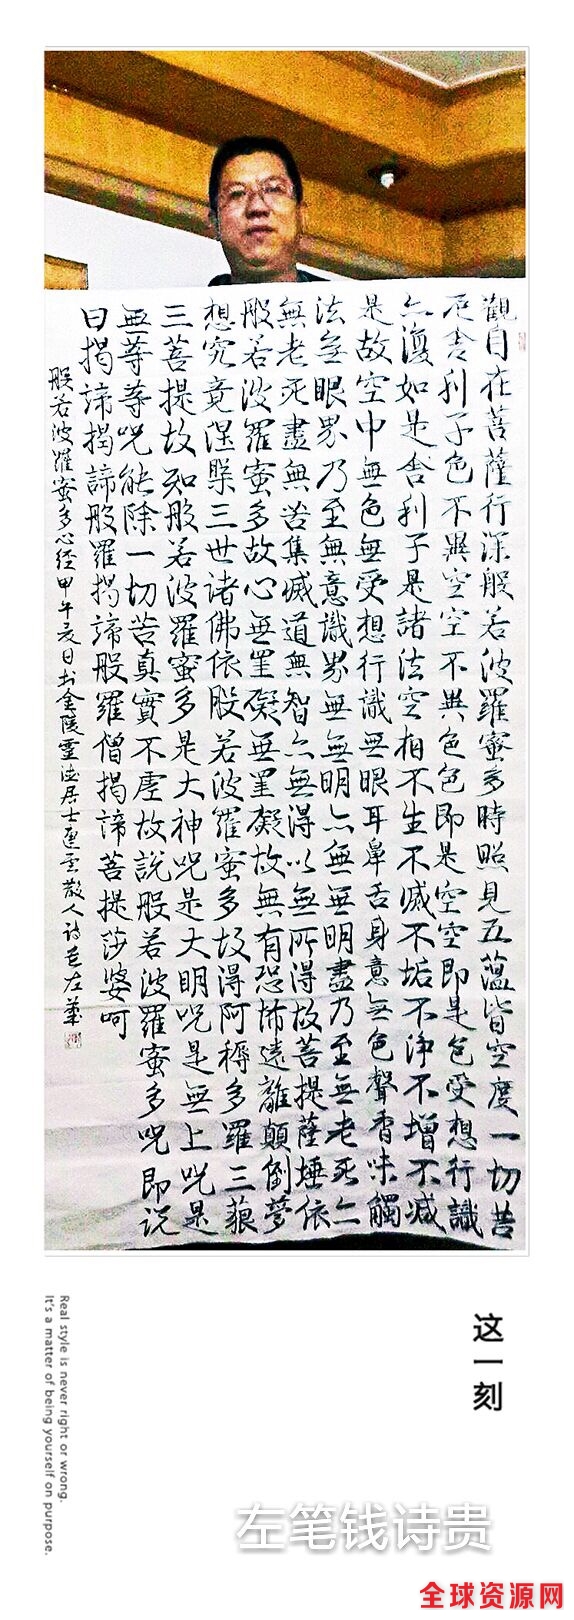 觀自在菩薩行深般若波羅蜜多時照見五蕴皆空度一切苦
厄舍利子色不異空空不異色色即是空空即是色受想行識
亦復如是舍利子是諸法空相不生不滅不垢不淨不增不減
是故空中無色無受想行識無眼耳鼻舌身意無色聲香味觸
法無眼界乃至無意識界無無明亦無無明盡乃至無老死亦
無老死盡無苦集滅道無智亦無得以無所得故菩提薩埵依
般若波羅蜜多故心無罣礙無罣礙故無有恐怖遠離顛倒夢
想究竟涅槃三世诸佛依般若波羅蜜多故得阿耨多羅三藐
三菩提故知般若波羅蜜多是大神呪是大明呪是無上呪是
無等等呪能除一切苦真實不虛故説般若波羅蜜多呪即说
曰揭諦揭諦般羅揭諦般羅僧揭諦菩提莎婆呵
般若波羅蜜多心经甲午亥日书金陵靈居士散人诗左筆
这一刻
Real style is never right or wrong.
It's a matter of being yourself on purpose.
左笔钱诗贵
全球资源网